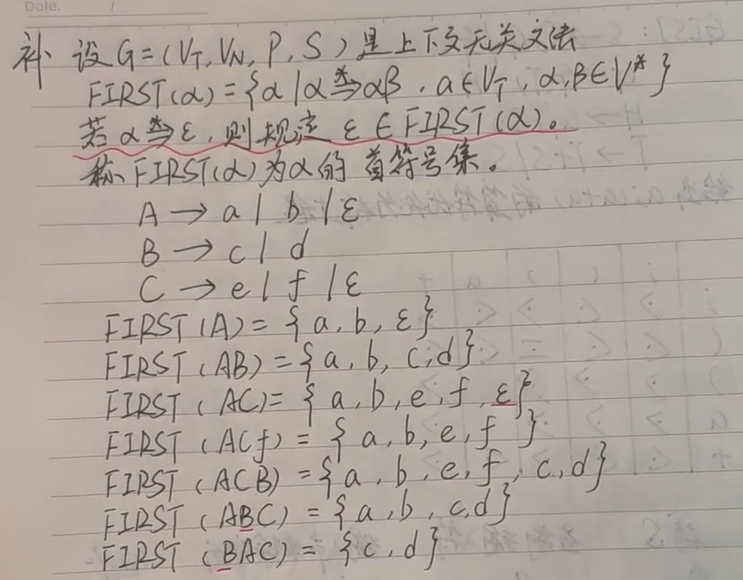 Date. /
补. 设G=(V_T, V_N, P, S)是上下文无关文法
FIRST(α)={α|α⇒*αβ, a∈V_T, α,β∈V*}
若α⇒*ε, 则规定 ε∈FIRST(α)。
称FIRST(α)为α的首符号集。
A → a | b | ε
B → c | d
C → e | f | ε
FIRST(A)={a, b, ε}
FIRST(AB)={a, b, c, d}
FIRST(AC)={a, b, e, f, ε}
FIRST(ACf)={a, b, e, f}
FIRST(ACB)={a, b, e, f, c, d}
FIRST(ABC)={a, b, c, d}
FIRST(BAC)={c, d}